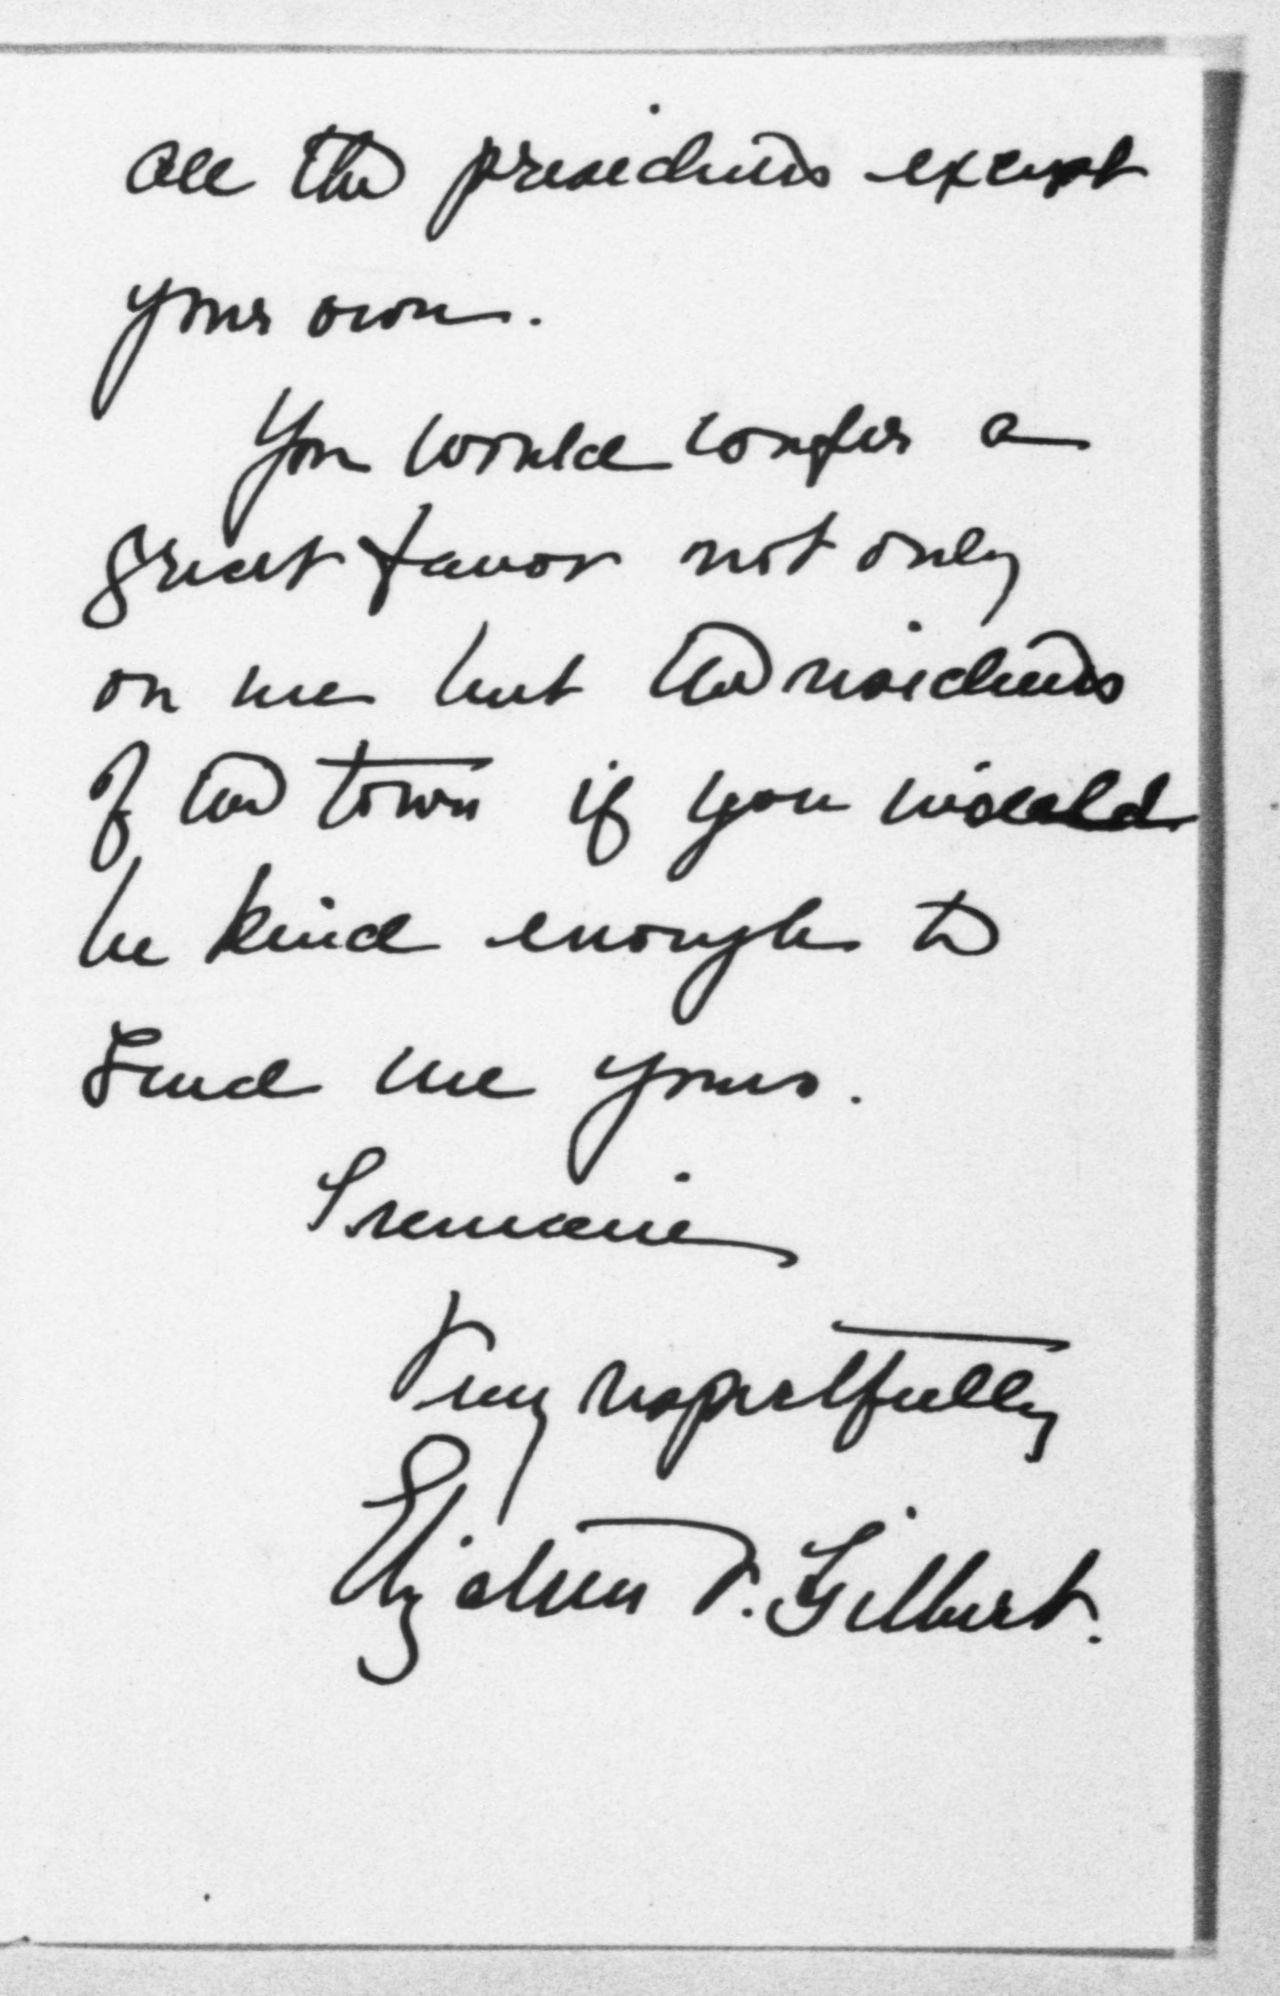 all the presidents except
your own.
You would confer a
great favor not only
on me but the residents
of the town if you would
be kind enough to
send me yours.
I remain
Very respectfully
Elizabeth T. Gilbert.